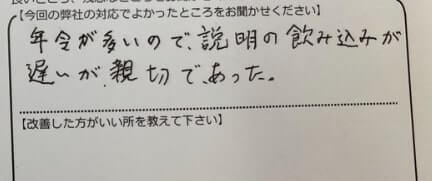 【今回の弊社の対応でよかったところをお聞かせください】
年令が多いので、説明の飲み込みが
遅いが、親切で、あった。
【改善した方がいい所を教えて下さい】